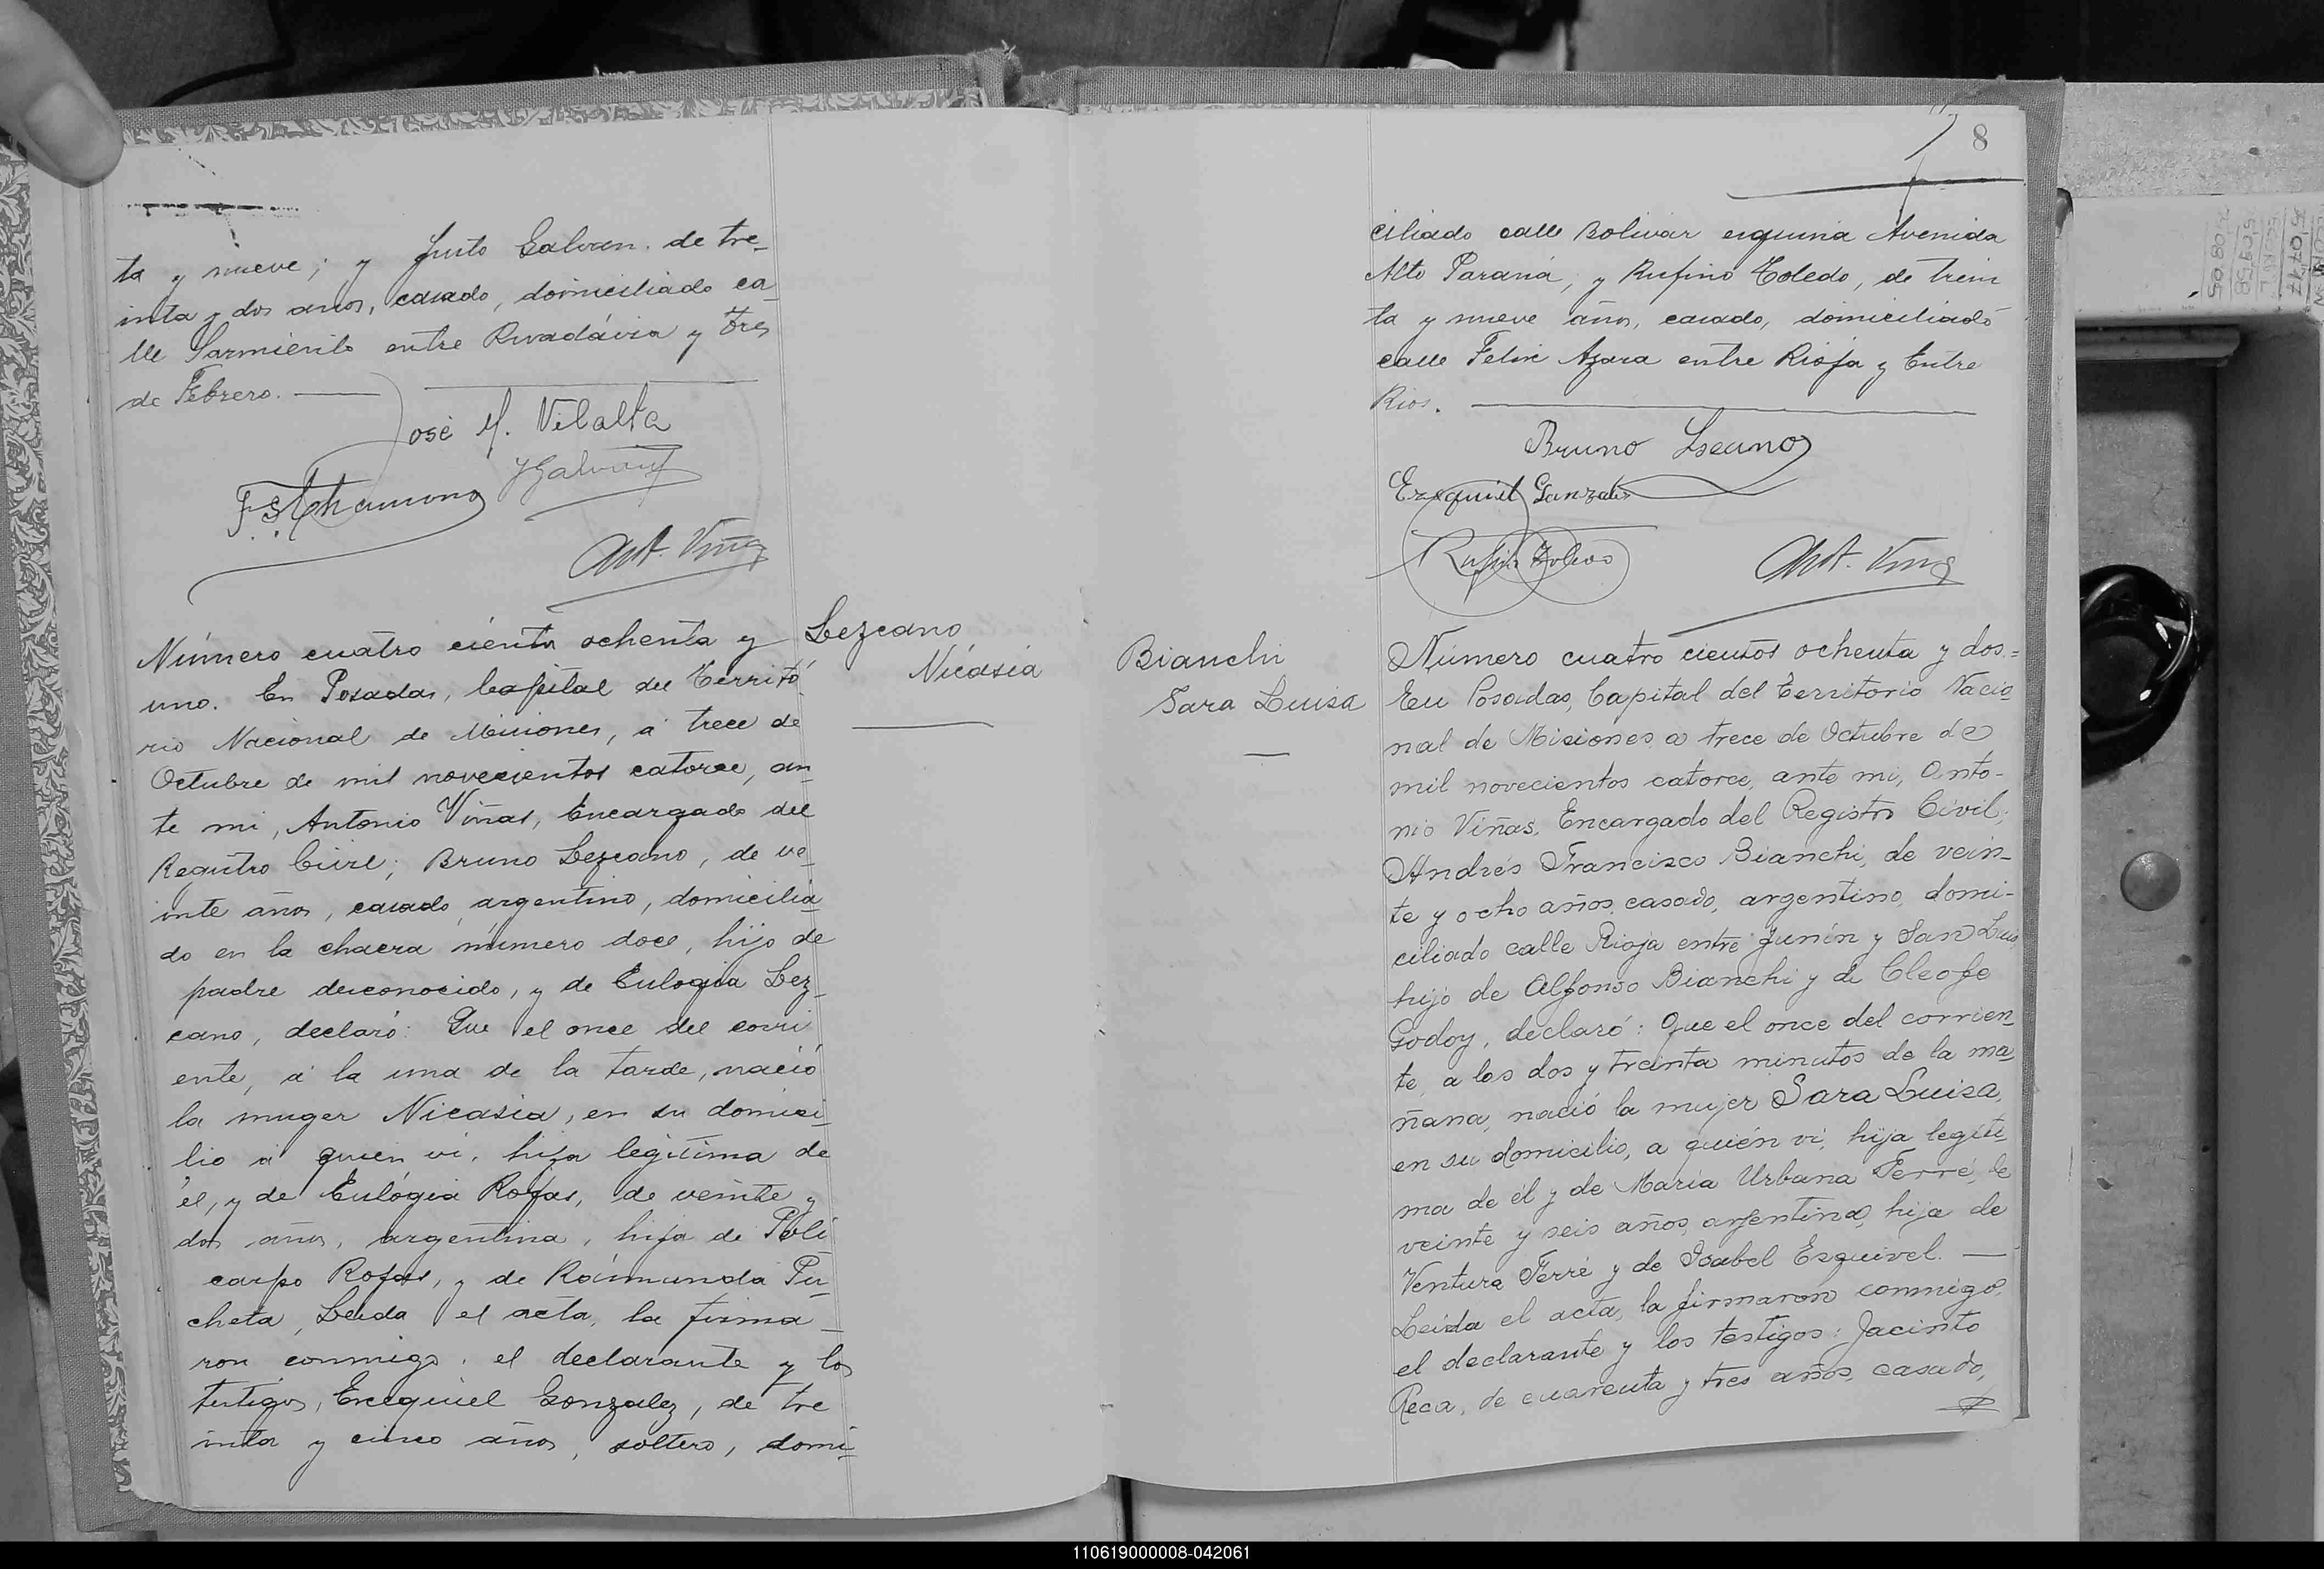 ta y nueve; y Justo Galvan. de tre_
inta y dos años, casado, domiciliado ca_
lle Sarmiento entre Rivadávia y tres
de Febrero.
José M. Vilalta
JGalvan
Ant. Viñas
Número cuatro cientos ochenta y
uno. En Posadas, Capital del Territó
rio Nacional de Misiones, á trece de
Octubre de mil novecientos catorce, an_
te mi, Antonio Viñas, Encargado del
Registro Civil; Bruno Lezcano, de ve_
inte años, casado, argentino, domicilia_
do en la chacra número doce, hijo de
padre desconocido, y de Eulogia Lez_
cano, declaró: Que el once del corri_
ente, á la una de la tarde, nació
la muger Nicasia, en su domici_
lio á quien vi, hija legitima de
él, y de Eulógia Rojas, de veinte y
dos años, argentina, hija de Poli_
carpo Rojas, y de Raimunda Pu_
cheta, Leida el acta, la firma_
ron conmigo, el declarante y los
testigos, Ezequiel Gonzalez, de tre
inta y cinco años, soltero, domi_
Lezcano
Nicasia
8
ciliado calle Bolivar esquina Avenida
Alto Paraná, y Rufino Toledo, de trein
ta y nueve años, casado, domiciliado
calle Felix Azara entre Rioja y Entre
Rios.
Bruno Lscano
Ezequiel Gonzales
Rufino Toledo
Ant. Viñas
Bianchi
Sara Luisa
Número cuatro cientos ochenta y dos.=
En Posadas, Capital del Territorio Nacio_
nal de Misiones a trece de Octubre de
mil novecientos catorce, ante mi, Anto-
nio Viñas, Encargado del Registro Civil;
Andrés Francisco Bianchi, de vein_
te y ocho años, casado, argentino, domi-
ciliado calle Rioja entre Junín y San Luis
hijo de Alfonso Bianchi y de Cleofe
Godoy, declaró: Que el once del corrien_
te, a las dos y treinta minutos de la ma_
ñana, nació la mujer Sara Luisa,
en su domicilio, a quién vi, hija legiti_
ma de él y de María Urbana Ferré, de
veinte y seis años, argentina, hija de
Ventura Ferré y de Isabel Esquivel. —
Leída el acta, la firmaron conmigo,
el declarante y los testigos: Jacinto
Reca, de cuarenta y tres años, casado,
110619000008-042061